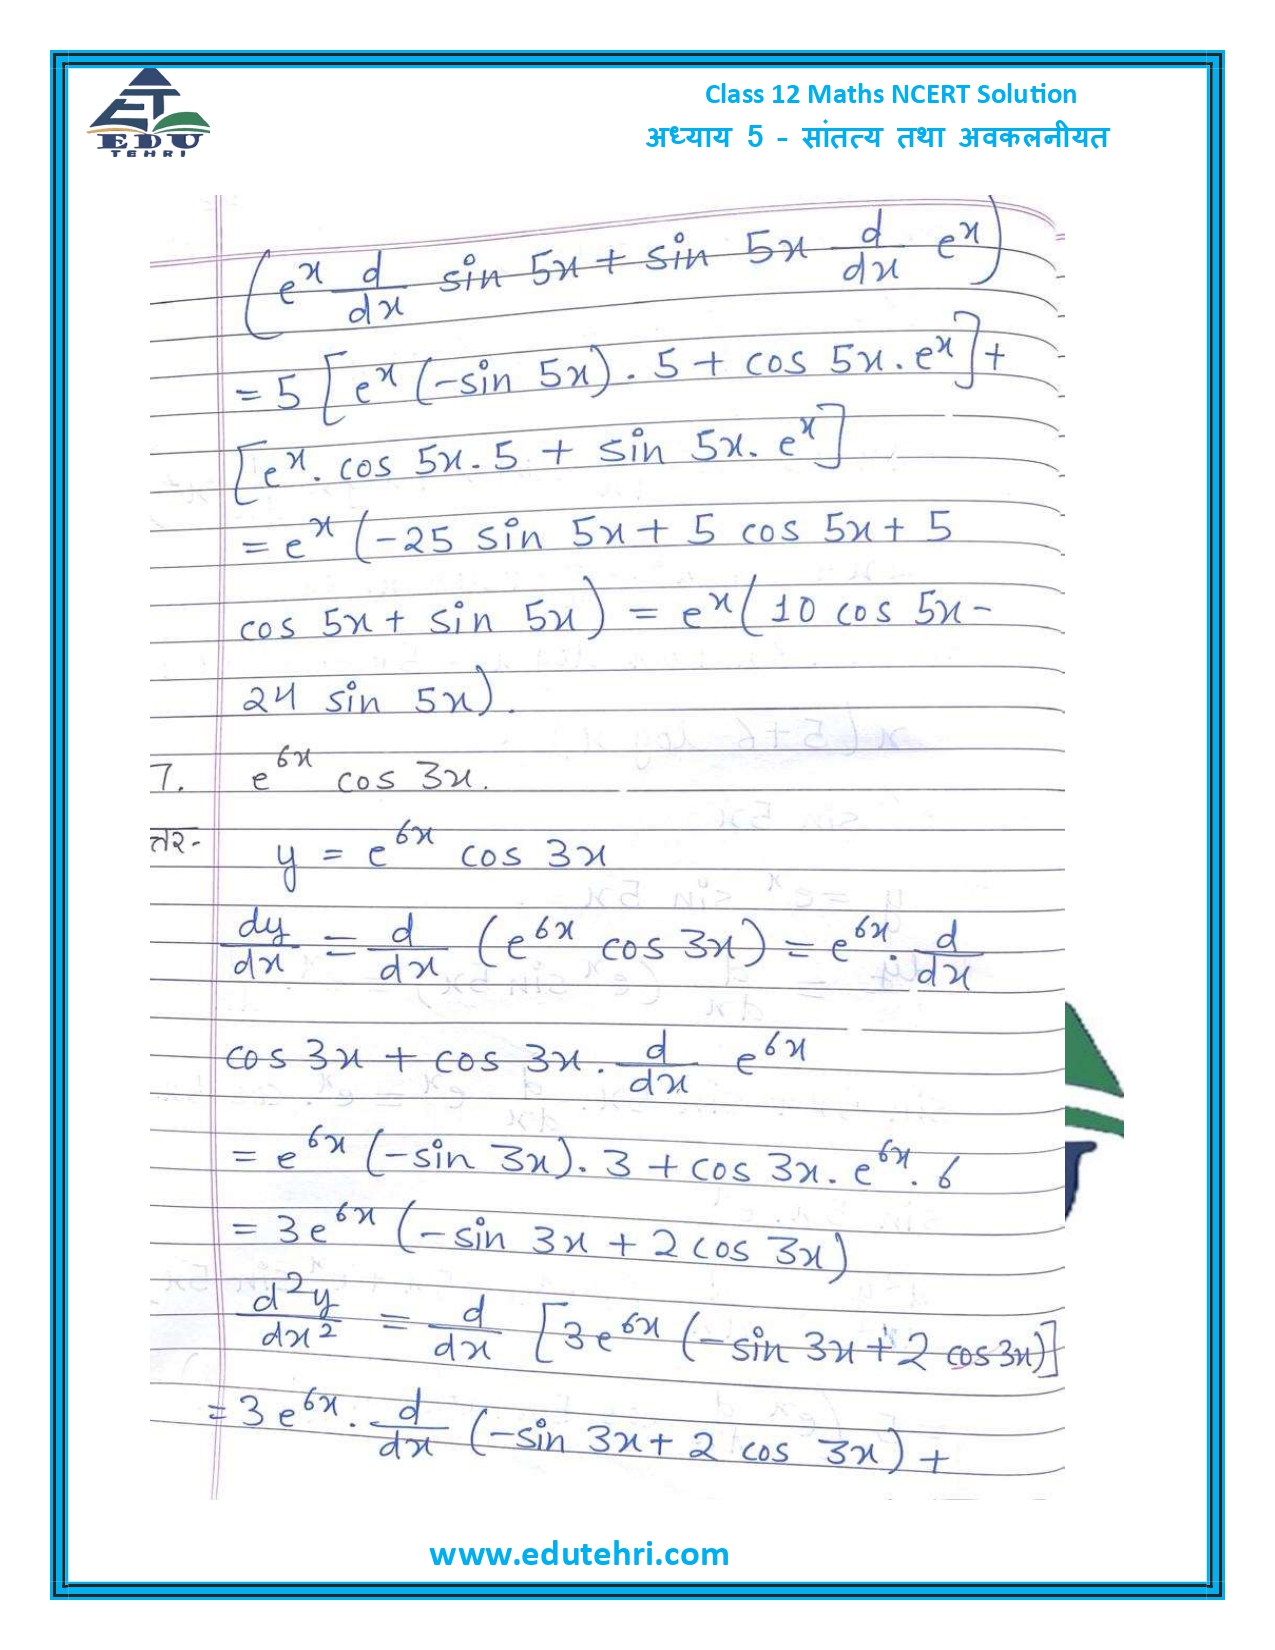 EDU
TEHRI
Class 12 Maths NCERT Solution
अध्याय 5 - सांतत्य तथा अवकलनीयत
(e^x d/dx sin 5x + sin 5x d/dx e^x)
= 5 [e^x (-sin 5x) . 5 + cos 5x . e^x] +
[e^x . cos 5x . 5 + sin 5x . e^x]
= e^x (-25 sin 5x + 5 cos 5x + 5
cos 5x + sin 5x) = e^x (10 cos 5x -
24 sin 5x).
7. e^6x cos 3x.
त्तर- y = e^6x cos 3x
dy/dx = d/dx (e^6x cos 3x) = e^6x . d/dx
cos 3x + cos 3x . d/dx e^6x
= e^6x (-sin 3x) . 3 + cos 3x . e^6x . 6
= 3e^6x (-sin 3x + 2 cos 3x)
d²y/dx² = d/dx [3e^6x (-sin 3x + 2 cos 3x)]
= 3e^6x . d/dx (-sin 3x + 2 cos 3x) +
www.edutehri.com